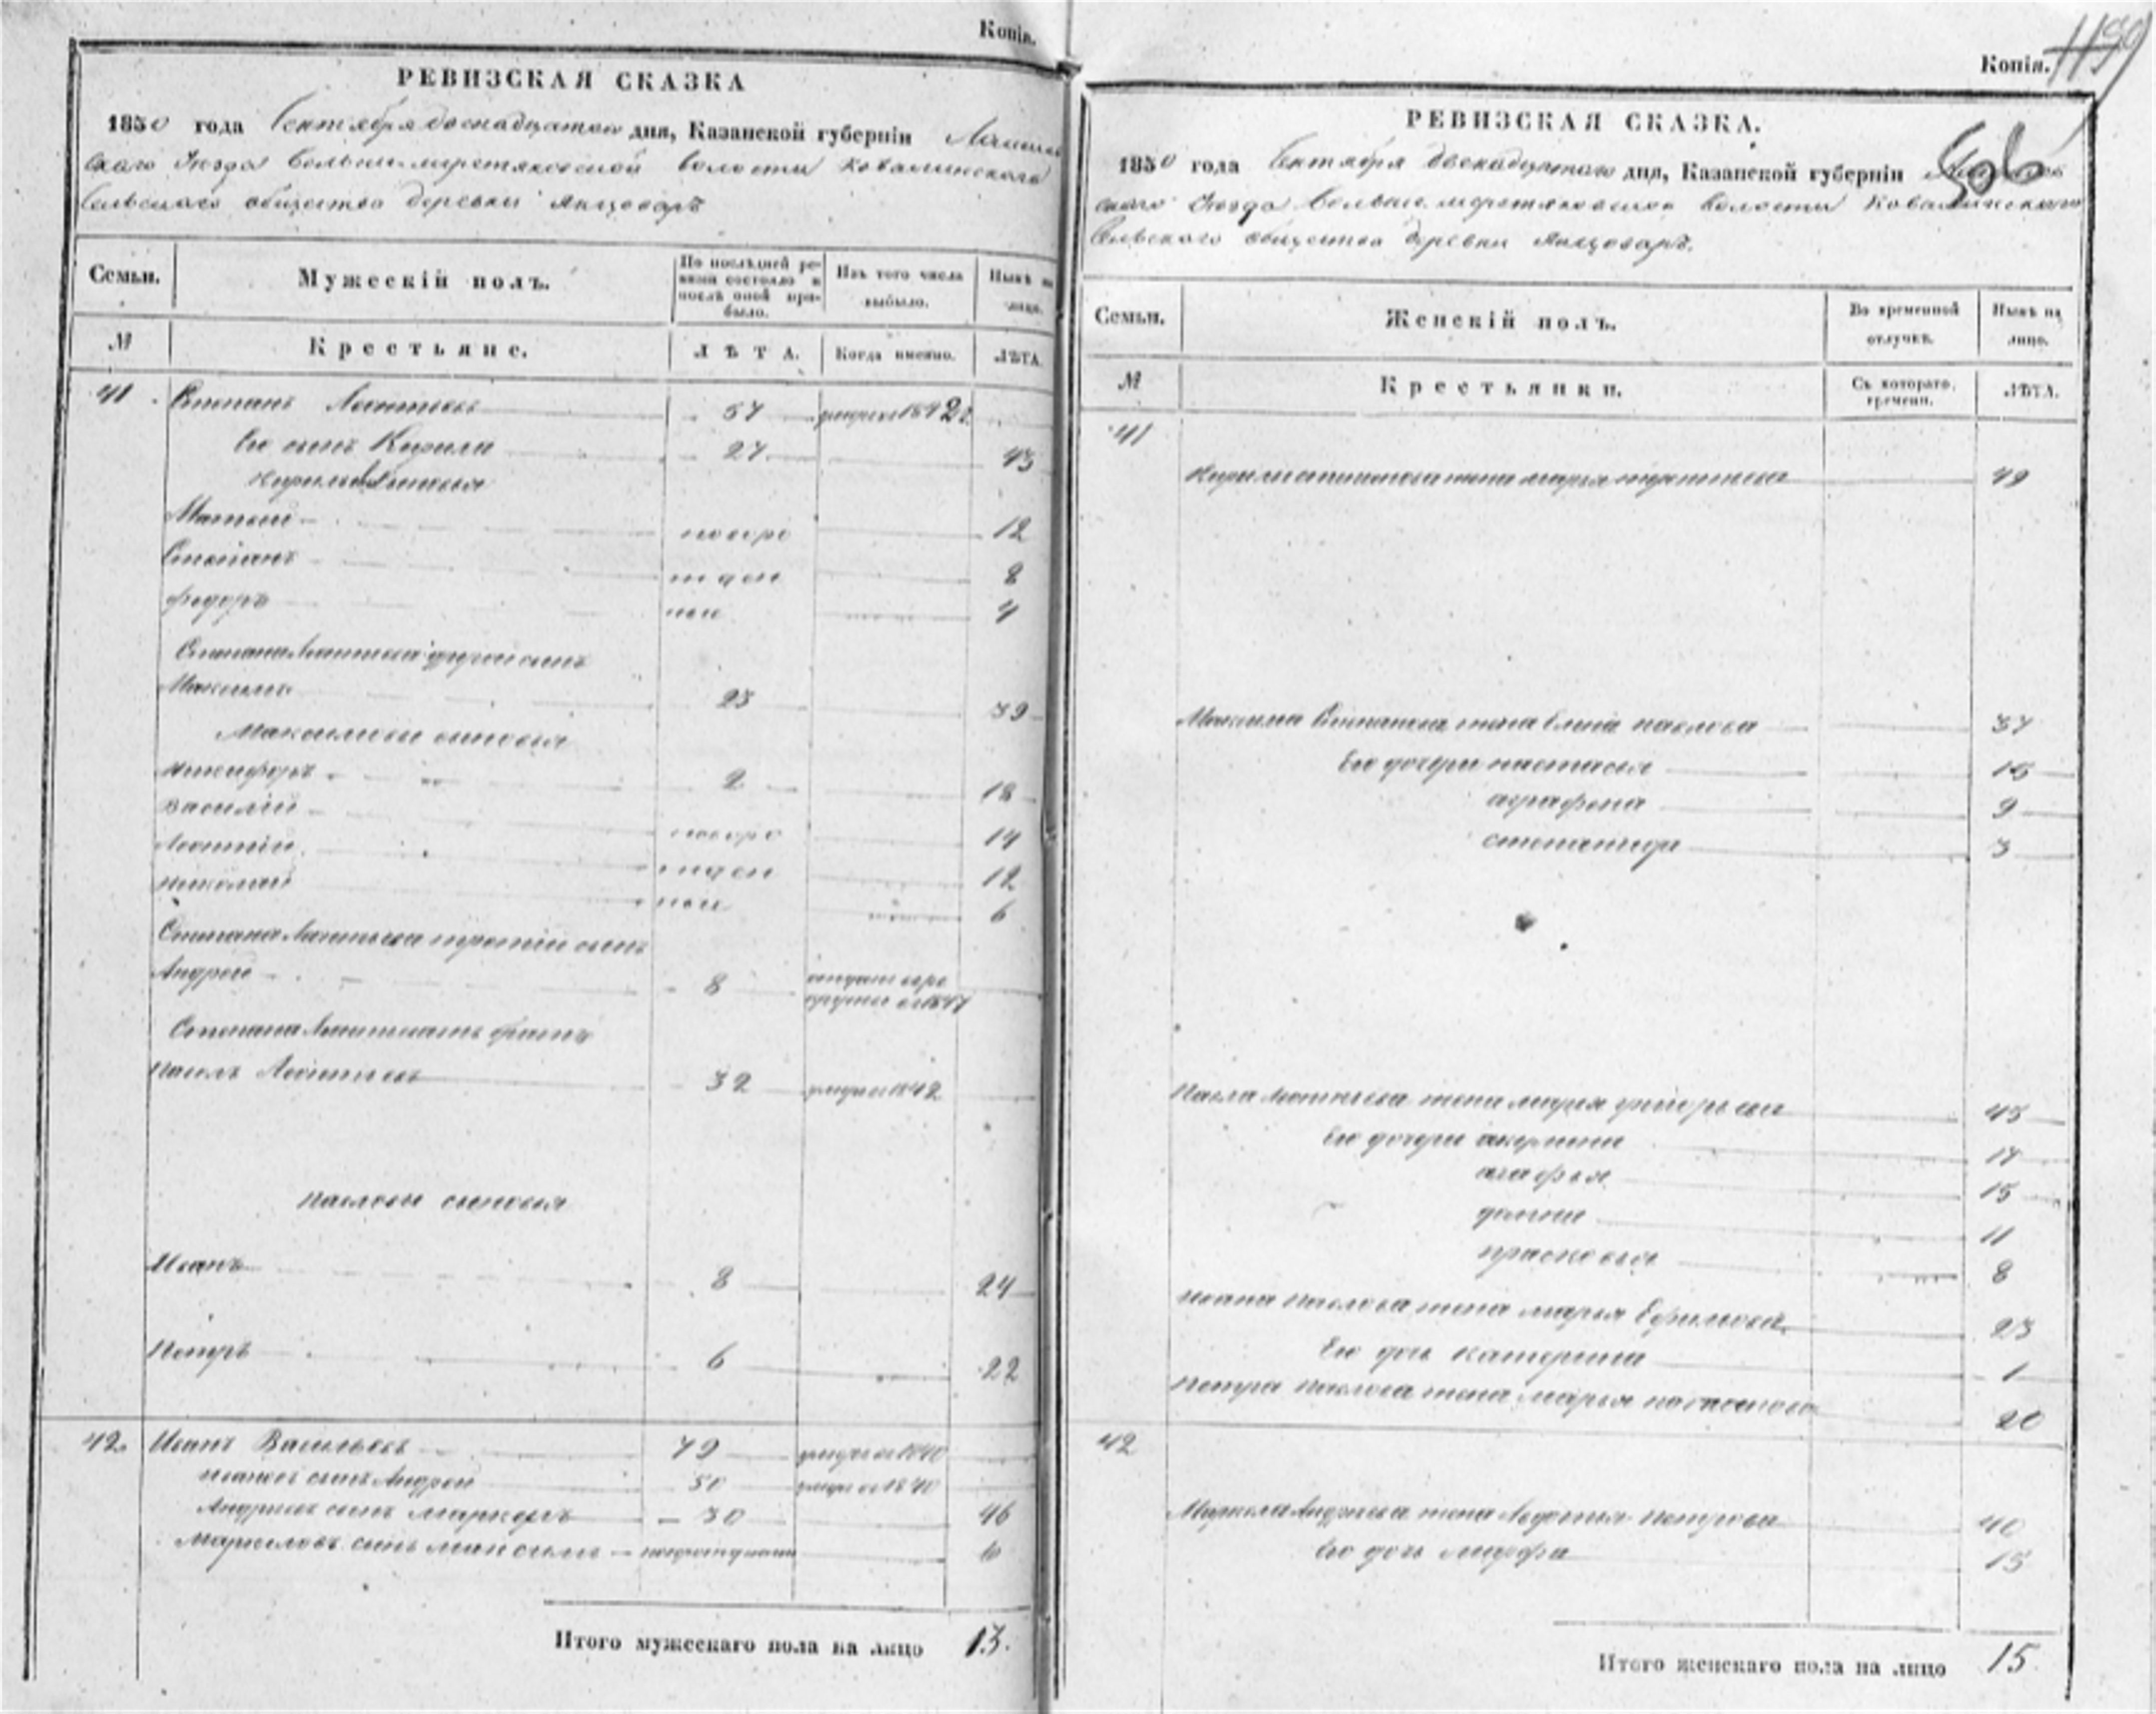 Копія.
РЕВИЗСКАЯ СКАЗКА
1850 года Сентября двенадцатого дня, Казанской губерніи Лаишев
скаго Уезда волости Ковалинскаго
Сельскаго общества деревни Янцоваръ
Семьи. Мужескій полъ. По послѣдней ревизіи состояло и послѣ оной прибыло. Изъ того числа выбыло. Нынѣ на лицо.
№ Крестьяне. ЛѢТА. Когда именно. ЛѢТА.
41 Степанъ Леонтьевъ 57 умеръ в 1842 г.
Его сынъ Кирила 27 43
Кириловы сыновья
Матвей новоро 12
Степанъ жден 8
Федоръ ные 4
Степана Леонтьева другой сынъ
Максимъ 23 39
Максимовы сыновья
Никифоръ 2 18
Василий новоро 14
Леонтий жден 12
Николай ные 6
Степана Леонтьева третий сынъ
Андрей 8 отдан в ре
круты в 1847
Степана Леонтьева братъ
Павелъ Леонтьевъ 32 умеръ в 1842
Павловы сыновья
Иванъ 8 24
Петръ 6 22
42. Иванъ Васильевъ 72 умеръ в 1840
Ивановъ сынъ Андрей 50 умеръ в 1840
Андреевъ сынъ Маркелъ 30 46
Маркеловъ сынъ Максимъ 6
Итого мужескаго пола на лицо 13.
Копія. 1199
506
РЕВИЗСКАЯ СКАЗКА.
1850 года Сентября двенадцатого дня, Казанской губерніи Лаишев
скаго Уезда волости Ковалинскаго
Сельскаго общества деревни Янцоваръ.
Семьи. Женскій полъ. Во временной отлучкѣ. Нынѣ на лицо.
№ Крестьянки. Съ котораго времени. ЛѢТА.
41
Кирила Степанова жена Марья 49
Максима Степанова жена Елена Павлова 37
Его дочери Настасья 16
Аграфена 9
Степанида 3
Павла Леонтьева жена Марья Григорьева 45
Его дочери Акулина 17
Агафья 15
Домна 11
Прасковья 8
Ивана Павлова жена Марья Ефимова 23
Его дочь Катерина 1
Петра Павлова жена Марья 20
42
Маркела Андреева жена Авдотья Петрова 40
Его дочь 15
Итого женскаго пола на лицо 15